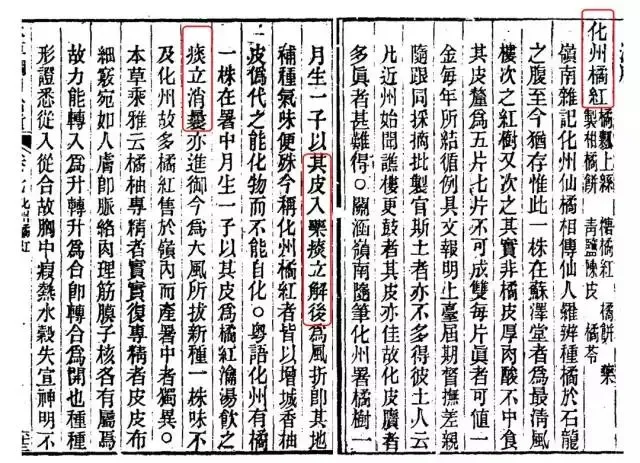 化州橘紅 橘瓤上絲 製柑橘餅 橘紅 青鹽陳皮 橘餅 橘苓 藥
嶺南雜記化州仙橘相傳仙人羅辨種橘於石龍
之腹至今猶存惟此一株在蘇澤堂者爲最清風
樓次之紅樹又次之其實非橘皮厚肉酸不中食
其皮釐爲五片七片不可成雙每片眞者可值一
金每年所結循例具文報明上臺屆期督撫差親
隨跟同採摘批製官斯土者亦不多得彼土人云
凡近州始聞譙樓更鼓者其皮亦佳故化皮贋者
多眞者甚難得○關涵嶺南隨筆化州署橘樹一
月生一子以其皮入藥痰立解後爲風折卽其地
補種氣味便殊今稱化州橘紅者皆以增城香柚
皮僞代之能化物而不能自化○粵語化州有橘
一株在署中月生一子以其皮爲橘紅瀹湯飲之
痰立消曩亦進御今爲大風所拔新種一株味不
及化州故多橘紅售於嶺內而產署中者獨異○
本草乘雅云橘柚專精者實實復專精者皮皮布
細竅宛如人膚卽脈絡肉理筋膜子核各有屬焉
故力能轉入爲升轉升爲合卽轉合爲開也種種
形證悉從入從合故胸中瘕熱水穀失宣神明不